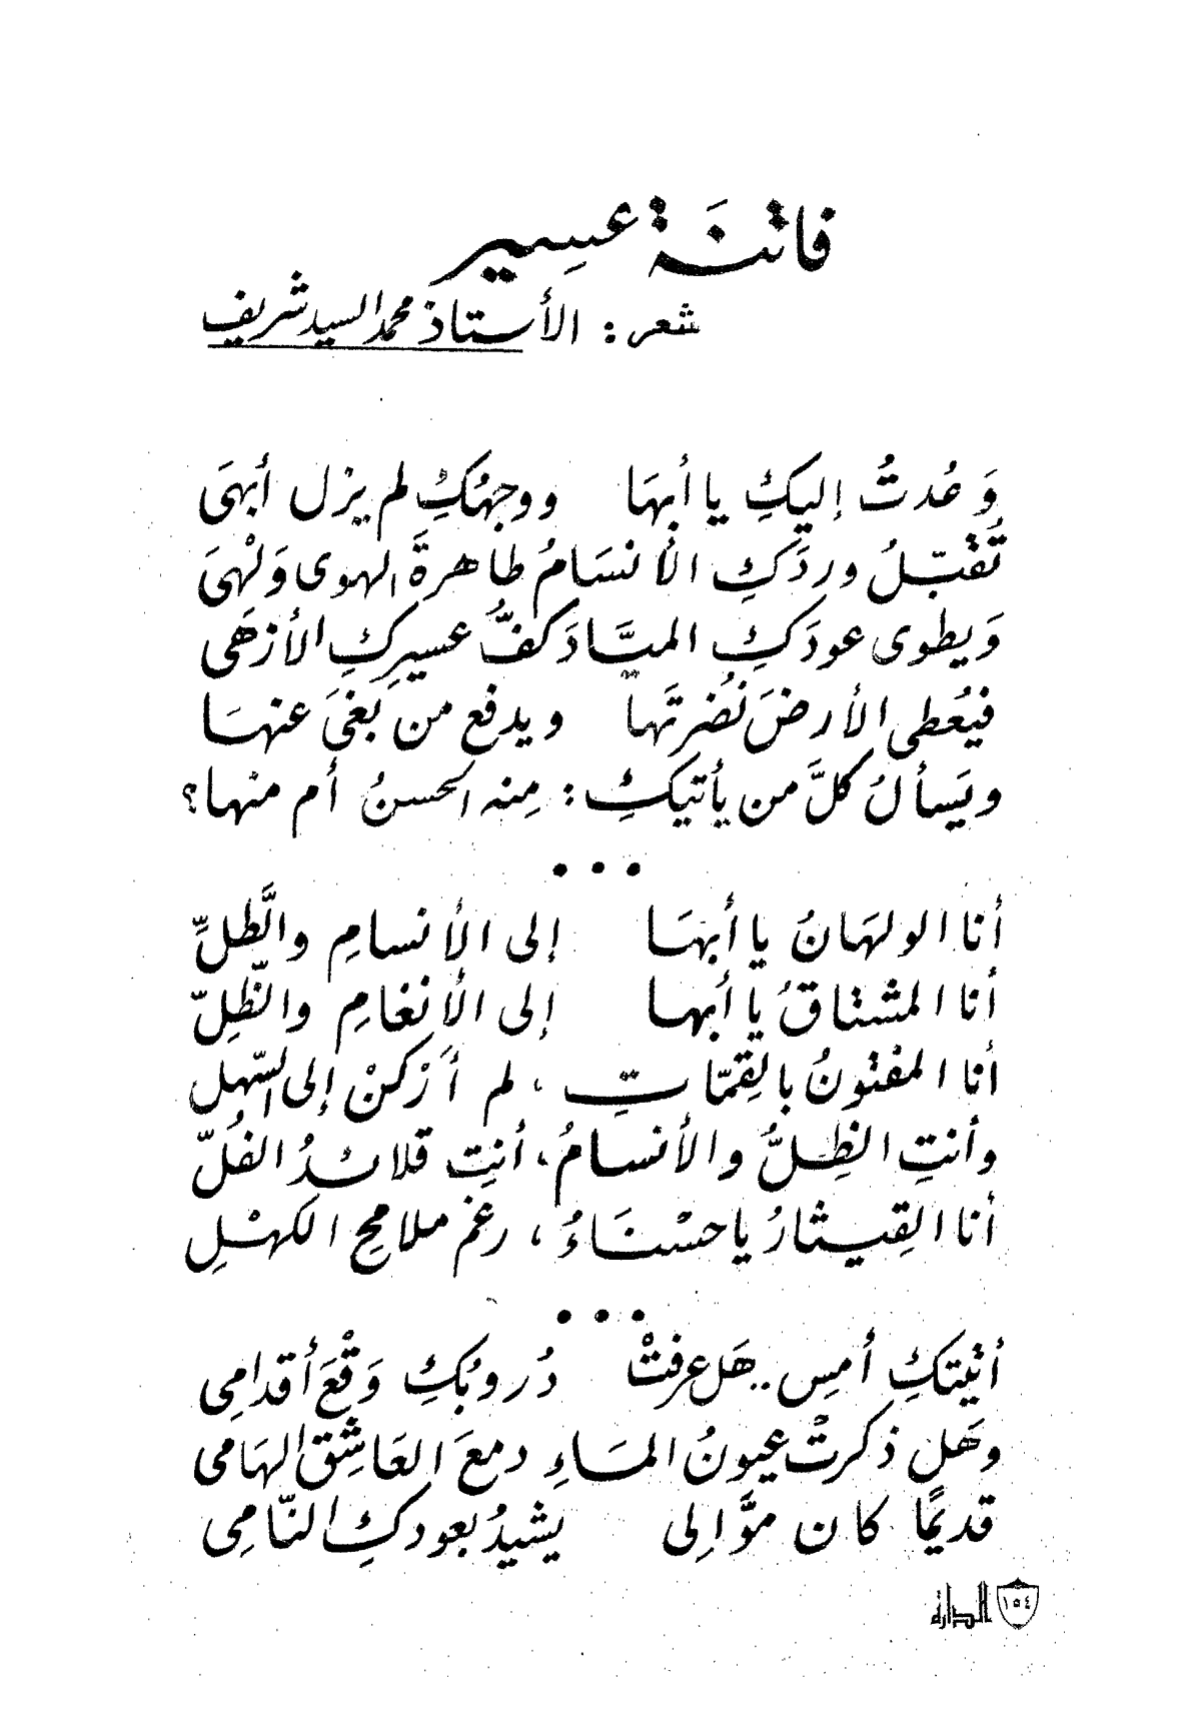 فاتنَة عسِير
شعر : الأستاذ محمد السيد شريف
وَعُدتُ إليكِ يا أبهَا ووجهُكِ لم يزل أبهَى
تُقبّلُ وردَكِ الأنسَامُ طاهرةَ الهوى وَلْهَى
وَيطوى عودَكِ الميَّادَ كفُّ عسيرِكِ الأزهَى
فيُعطى الأرضَ نُضرتَها ويدفع من بَغىَ عنهَا
ويَسألُ كلَّ من يأتيكِ : مِنه الحسنُ أم منْها؟
• • •
أنا الولهَانُ يا أبهَا إلى الأنسامِ والطَّلِّ
أنا المشتاقُ يا أبها إلى الأنغامِ والظِّلِّ
أنا المفتونُ بالقِمّاتِ ، لم أرْكنْ إلى السّهلِ
وأنتِ الظِلُّ والأنسامُ، أنتِ قلائدُ الفُلّ
أنا القِيثارُ يا حسْنَاءُ ، رغم ملامحِ الكهْلِ
• • •
أتيتكِ أمسِ .. هَل عرفتْ دُروبُكِ وَقْعَ أقدامِى
وهَل ذكرتْ عيونُ المَاءِ دمعَ العَاشِق الهَامى
قديمًا كان موَّالِى يشيدُ بعودكِ النّامِى
١٥٤ الدارة